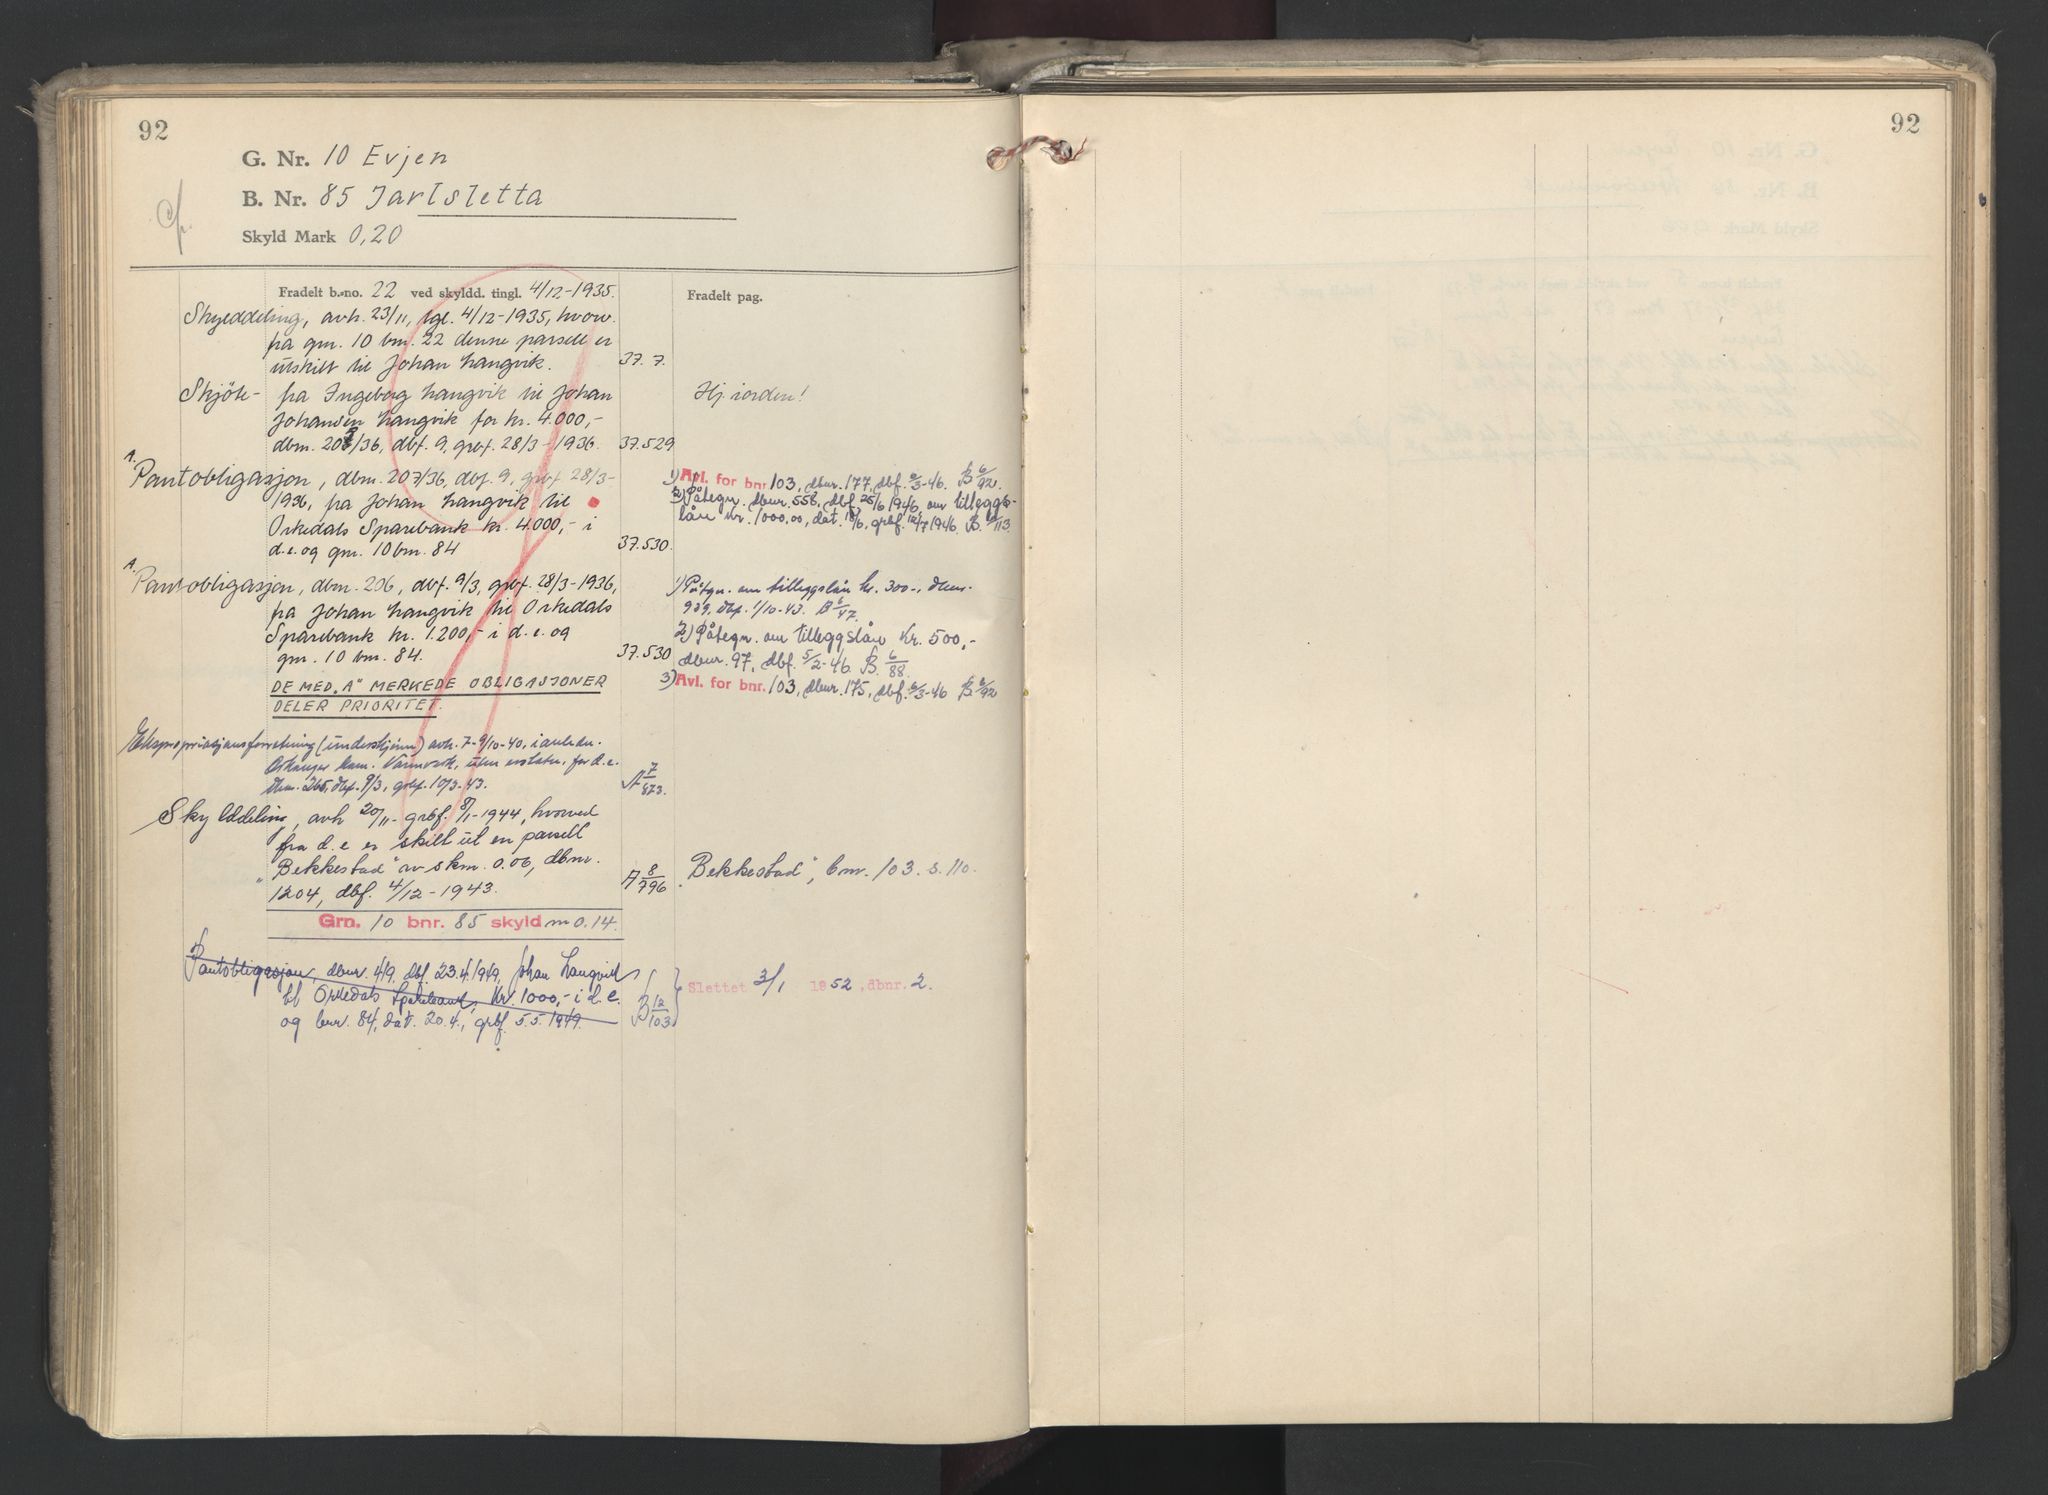 92
G. Nr. 10 Evjen
B. Nr. 85 Jarlsletta
Skyld Mark 0,20
Fradelt b.-no. 22 ved skyldd. tingl. 4/12-1935.
Fradelt pag.
Skylddeling, avh. 23/11, tgl. 4/12-1935, hvorv.
fra gnr. 10 bnr. 22 denne parsell er
utskilt til Johan Langvik.
37.7.
Skjöte - fra Ingeborg Langvik til Johan
Johansen Langvik for kr. 4.000,-
dbnr. 205/36, dbf. 9, grbf. 28/3-1936.
37.529
Hj. i orden!
A. Pantobligasjon, dbnr. 207/36, dbf. 9, grbf. 28/3-
1936, fra Johan Langvik til
Orkedals Sparebank kr. 4.000,- i
d.e. og gnr. 10 bnr. 84
37.530.
1) Avl. for bnr. 103, dbnr. 177, dbf. 6/3-46. B 6/92.
2) Påtegn. dbnr. 558, dbf. 25/6 1946, om tilleggs-
lån kr. 1000,00, dat. 18/6, grbf. 12/7 1946. B. 6/113.
A. Pantobligasjon, dbnr. 206, dbf. 9/3, grbf. 28/3-1936,
fra Johan Langvik til Orkedals
Sparebank kr. 1.200,- i d.e. og
gnr. 10 bnr. 84.
37.530
1) Påtgn. om tilleggslån kr. 300-, dbnr.
939, dbf. 1/10-43. B 6/47.
2) Påtegn. om tilleggslån kr. 500,-
dbnr. 97, dbf. 5/2-46. B. 6/88.
3) Avl. for bnr. 103, dbnr. 175, dbf. 6/3-46 B 6/92
DE MED "A" MERKEDE OBLIGASJONER
DELER PRIORITET.
Ekspropriasjonsforretning (underskjönn) avh. 7-9/10-40, i anledn.
Orkanger kom. Vannverk, uten erstatn. for d.e.
dbnr. 265, dbf. 9/3, grbf. 10/3-43.
A 7/873.
Skylddeling, avh 20/11- grbf. 8/1-1944, hvorved
fra d.e er skilt ut en parsell
"Bekkestad" av skm. 0.06, dbnr.
1204, dbf. 4/12-1943.
A 8/796
"Bekkestad", bnr. 103. s. 110.
Grn. 10 bnr. 85 skyld m 0.14.
Pantobligasjon, dbnr. 419, dbf. 23.4.1949, Johan Langvik
til Orkedals Sparebank, kr. 1000,- i d.e.
og bnr. 84, dat. 20.4., grbf. 5.5.1949.
B 12/103
Slettet 3/1 1952, dbnr. 2.
92